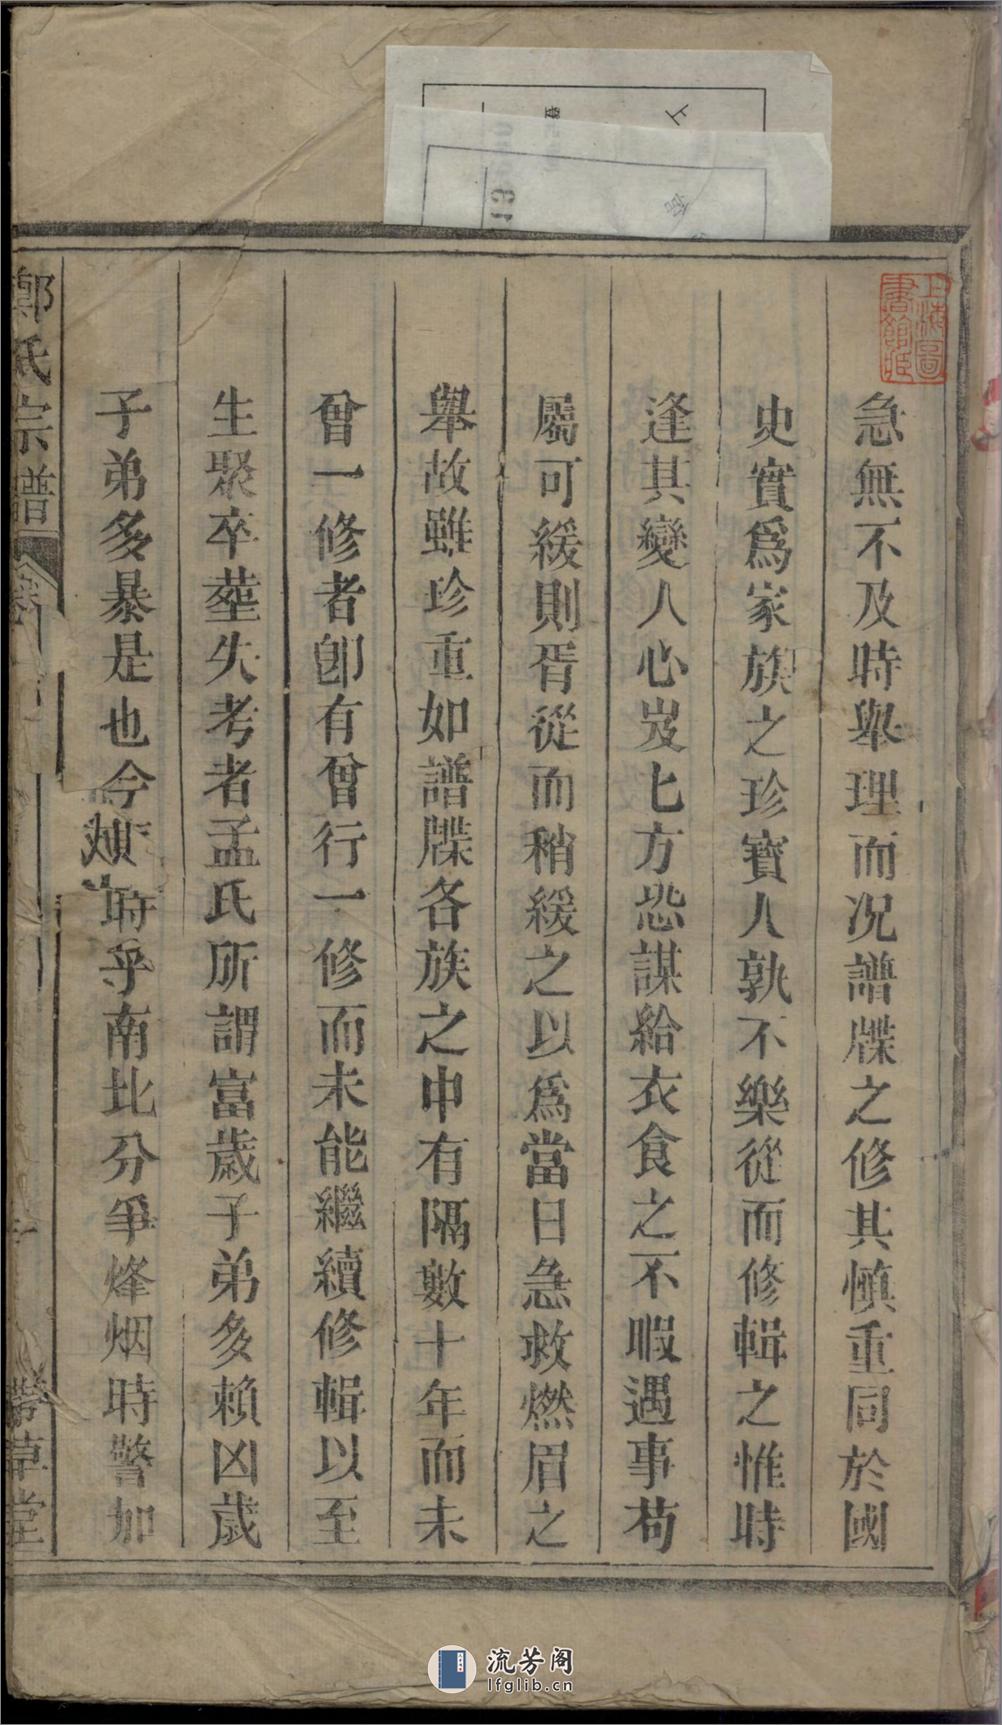 急無不及時舉理而况譜牒之修其慎重同於國
史實爲家族之珍寶人孰不樂從而修輯之惟時
逢其變人心岌七方恐謀給衣食之不暇遇事苟
屬可緩則胥從而稍緩之以爲當日急救燃眉之
舉故雖珍重如譜牒各族之中有隔數十年而未
曾一修者卽有曾行一修而未能繼續修輯以至
生聚卒塟失考者孟氏所謂富歲子弟多賴凶歲
子弟多暴是也今時乎南北分爭烽烟時警加
鄭氏宗譜
草堂
上海圖
書館
13
流芳阁
lfglib.cn